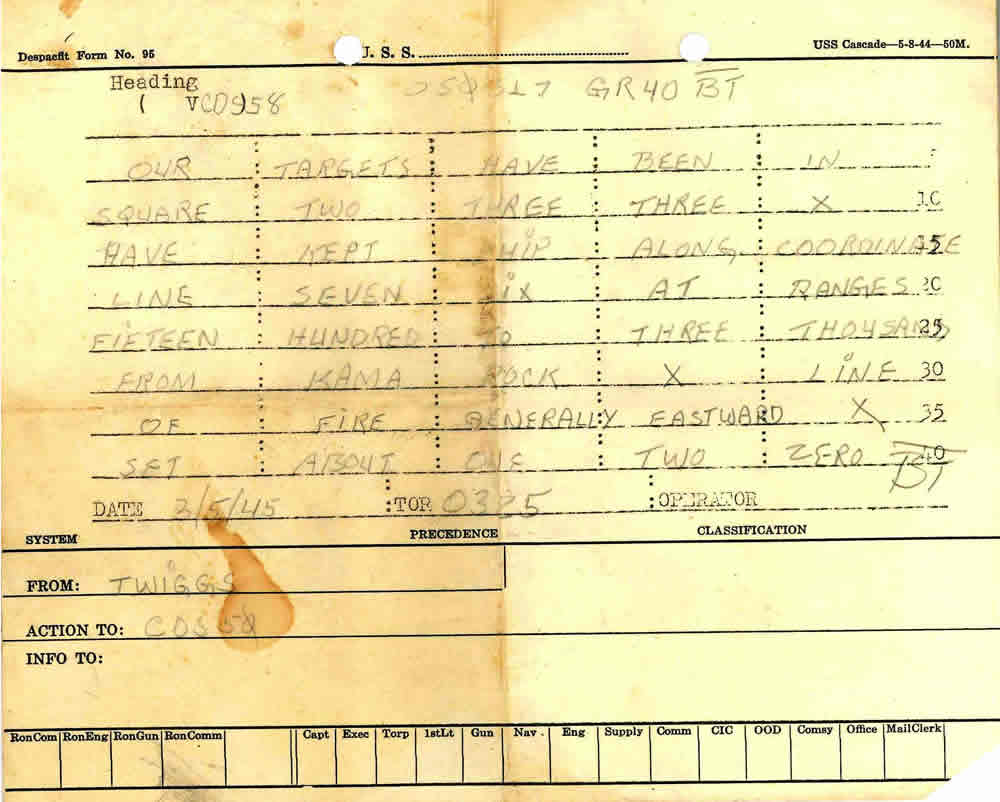 Despacht Form No. 95 U. S. S. USS Cascade—5-8-44—50M.
Heading
( VCDS58 GR40 BT
OUR TARGETS HAVE BEEN IN
SQUARE TWO THREE THREE X 10
HAVE KEPT SHIP ALONG COORDINATE 15
LINE SEVEN SIX AT RANGES 20
FIFTEEN HUNDRED TO THREE THOUSAND 25
FROM KAMA ROCK X LINE 30
OF FIRE GENERALLY EASTWARD X 35
SET ABOUT ONE TWO ZERO 40 BT
DATE 3/5/45 :TOR 0325 :OPERATOR
SYSTEM PRECEDENCE CLASSIFICATION
FROM: TWIGGS
ACTION TO: CDS 58
INFO TO:
RonCom RonEng RonGun RonComm Capt Exec Torp 1stLt Gun Nav. Eng Supply Comm CIC OOD Comsy Office MailClerk